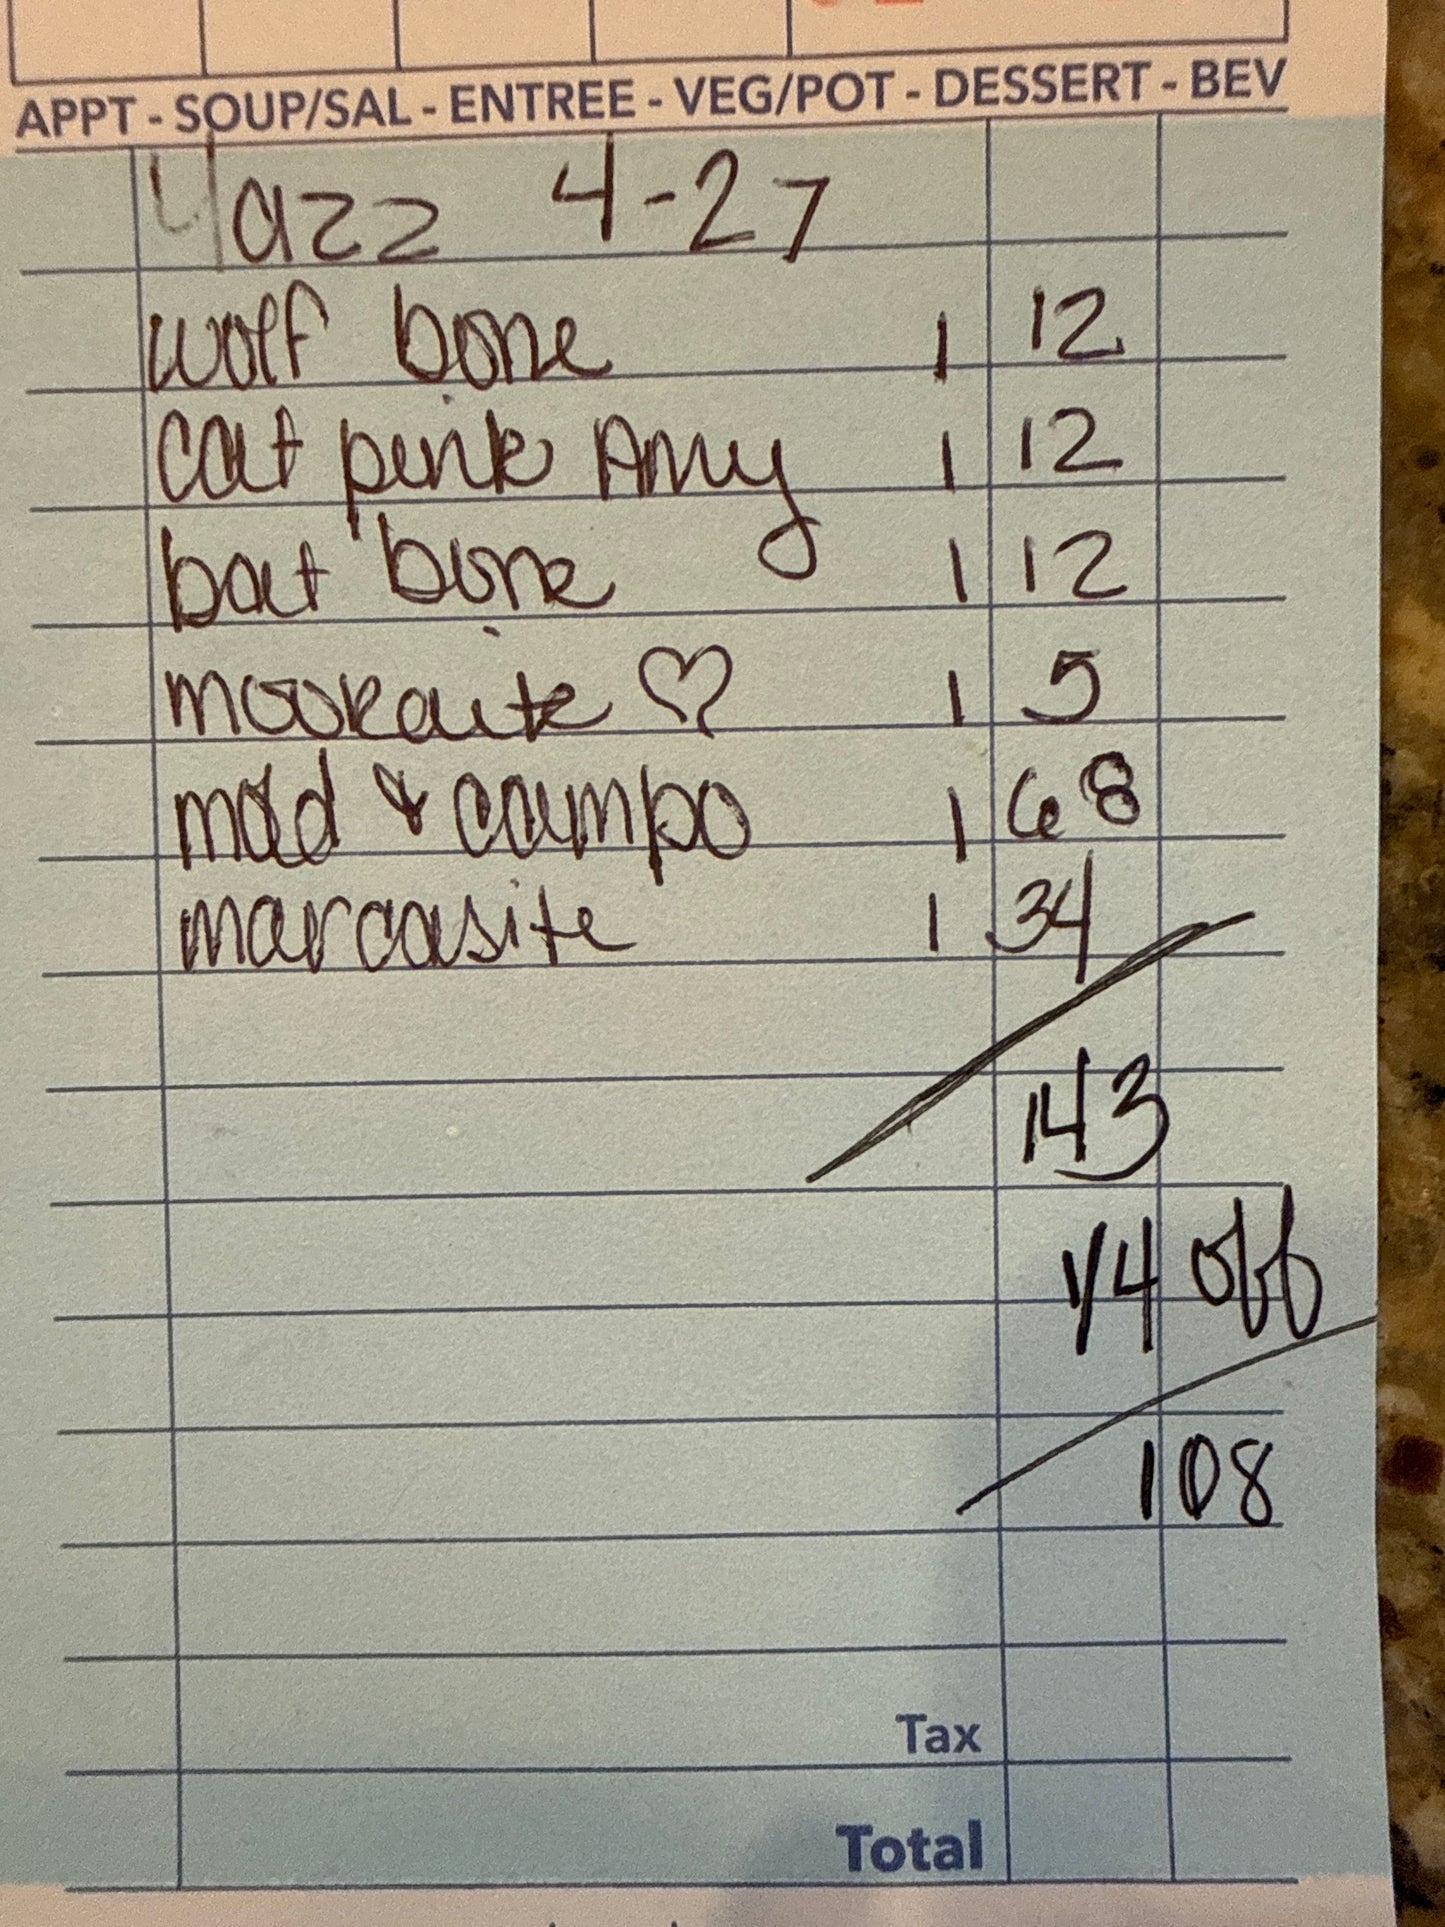 APPT - SOUP/SAL - ENTREE - VEG/POT - DESSERT - BEV
Yazz 4-27
wolf bone 1 12
cat pink Amy 1 12
bat bone 1 12
mookaite ♡ 1 5
mold & campo 1 68
marcasite 1 34
143
1/4 off
108
Tax
Total